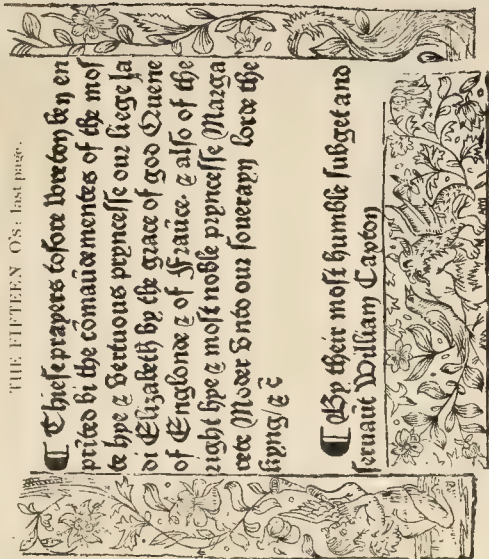 THE FIFTEEN O's: last page.
¶ Thiese prayers tofore wreton ben en
prited bi the cōmaūdementes of the mos
te hye ⁊ vertuous pryncesse our liege la
di Elizabeth by the grace of god Quene
of Englonde ⁊ of Fraūce. ⁊ also of the
right hye ⁊ most noble pryncesse Marga
rete Moder vnto our souerayn lorde the
kyng/⁊ c̄
¶ By their most humble subget and
seruaūt William Caxton